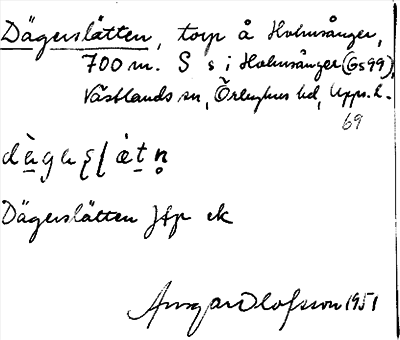 Dägerslätten, torp å Holmsånger,
700 m. S s i Holmsånger (Gs 99),
Västlands sn, Örbyhus hd, Upps. l.
69
Dägerslätten Jfp ek
Olofsson 1951